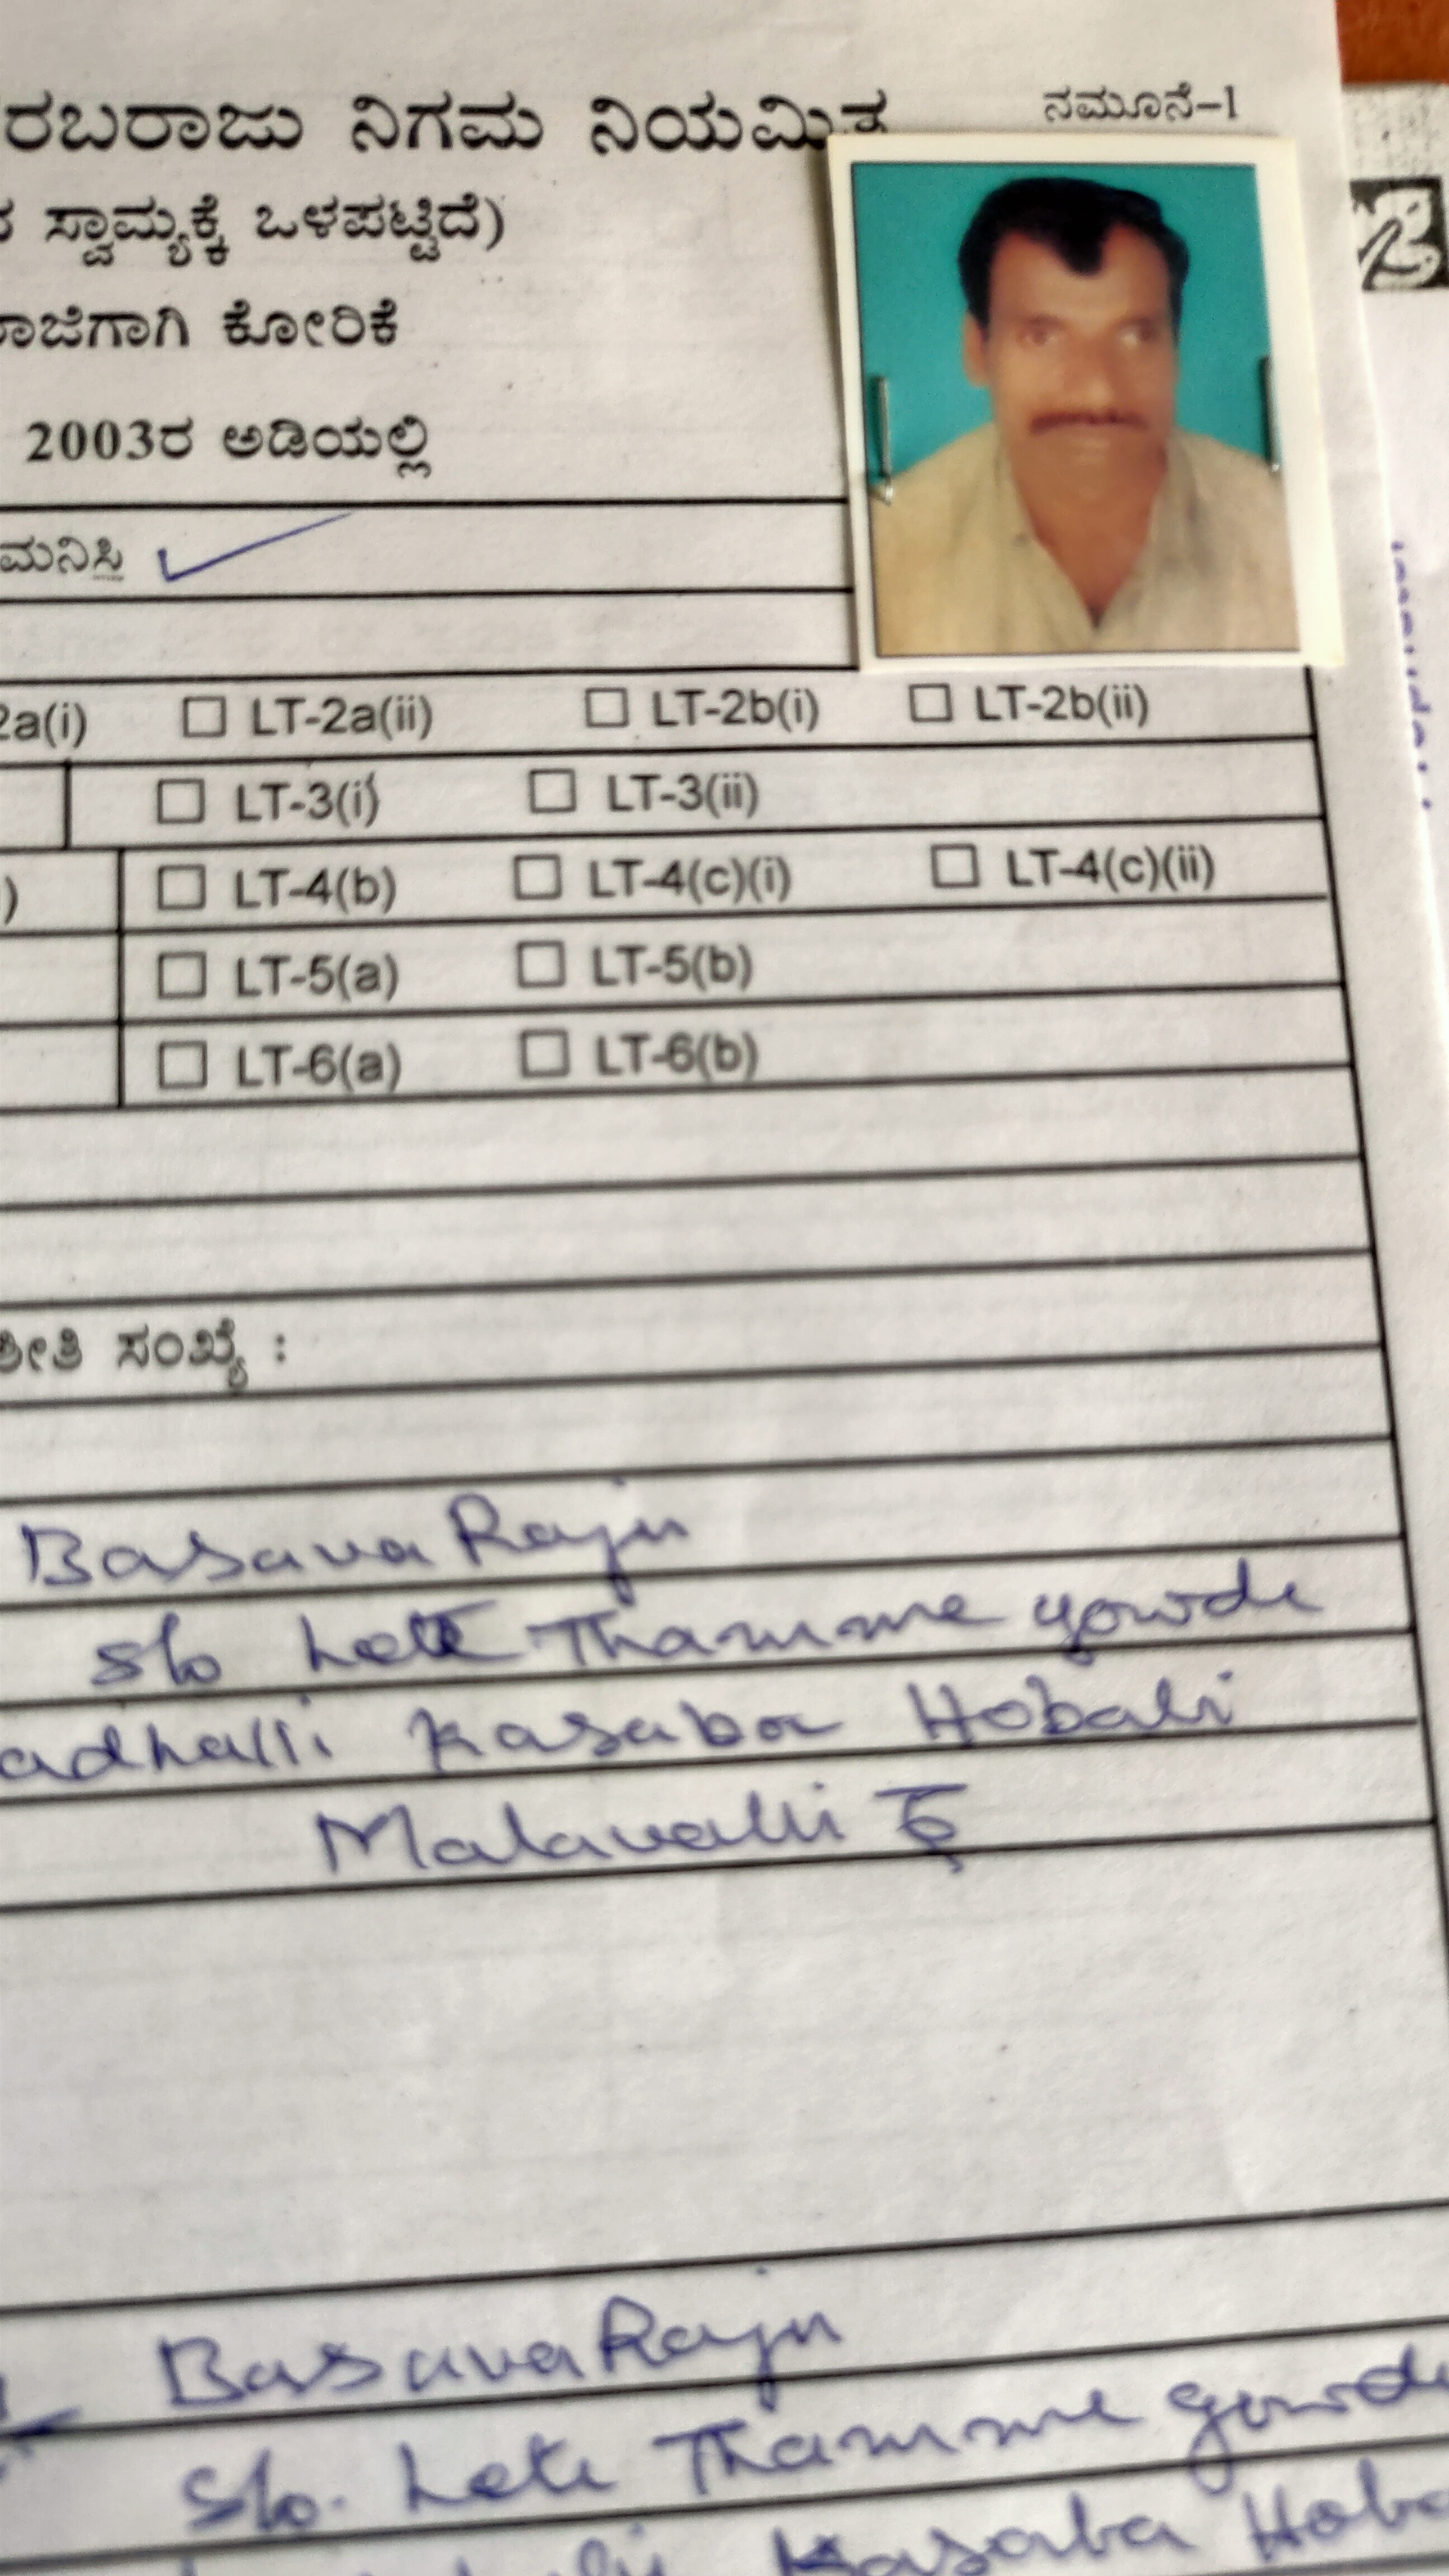 ನಮೂನೆ-1
ರಬರಾಜು ನಿಗಮ ನಿಯಮಿತ
ಸ್ವಾಮ್ಯಕ್ಕೆ ಒಳಪಟ್ಟಿದೆ)
ರಾಜಿಗಾಗಿ ಕೋರಿಕೆ
2003ರ ಅಡಿಯಲ್ಲಿ
ಮನಿಸಿ ✓
2a(i) ☐ LT-2a(ii) ☐ LT-2b(i) ☐ LT-2b(ii)
☐ LT-3(i) ☐ LT-3(ii)
) ☐ LT-4(b) ☐ LT-4(c)(i) ☐ LT-4(c)(ii)
☐ LT-5(a) ☐ LT-5(b)
☐ LT-6(a) ☐ LT-6(b)
ಸಂಖ್ಯೆ :
Basava Raju
S/o Late Thamme gowda
adhalli Kasaba Hobali
Malavalli
Basava Raju
S/o. Late Thamme gowda
Kasaba Hoba